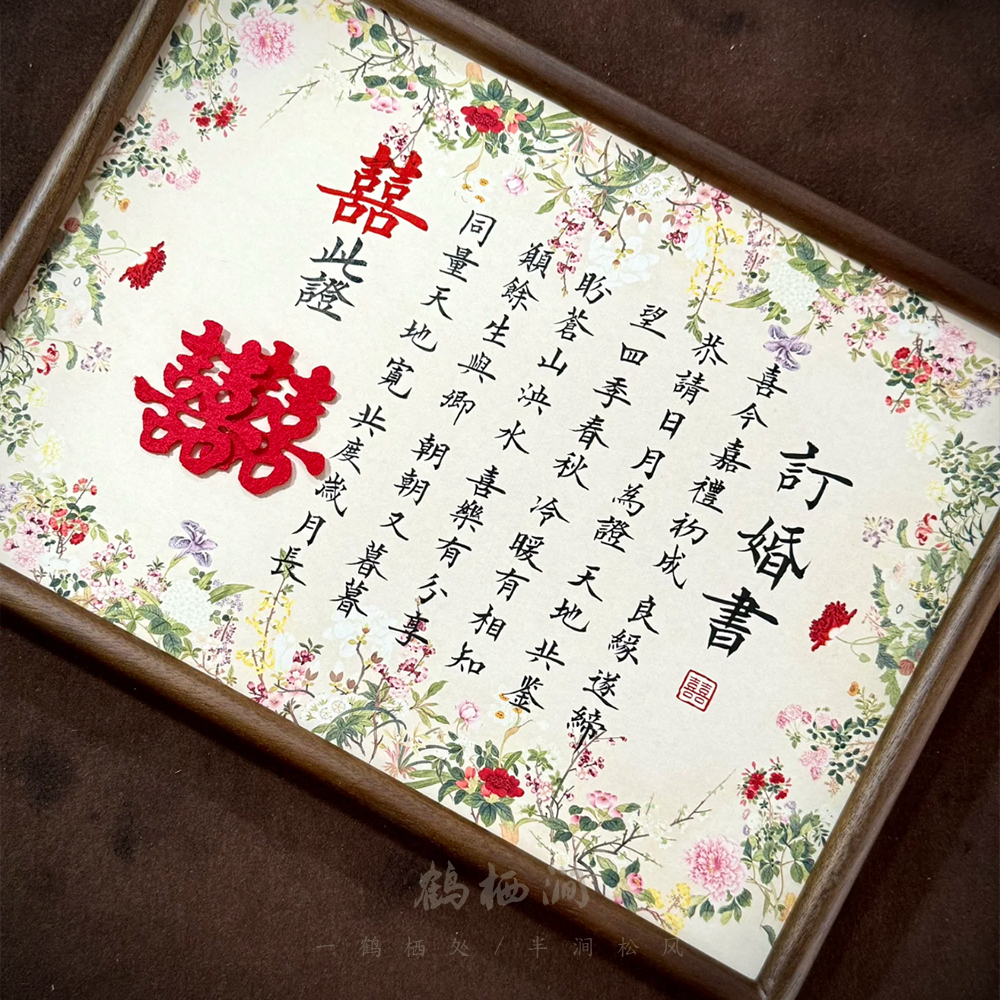 訂婚書
囍
喜今嘉禮初成 良緣遂締
恭請日月為證 天地共鑒
望四季春秋 冷暖有相知
盼蒼山泱水 喜樂有分享
願餘生與卿 朝朝又暮暮
同量天地寬 共度歲月長
囍 此證
囍
鹤栖涧
一鹤栖处/半涧松风